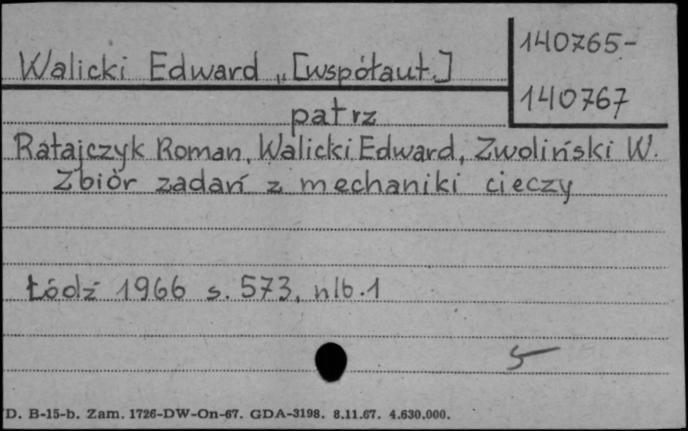 Walicki Edward „[współaut.]
140765-
140767
patrz
Ratajczyk Roman, Walicki Edward, Zwoliński W.
Zbiór zadań z mechaniki cieczy
Łódź 1966 s. 573, nlb. 1
5
D. B-15-b. Zam. 1726-DW-On-67. GDA-3198. 8.11.67. 4.630.000.